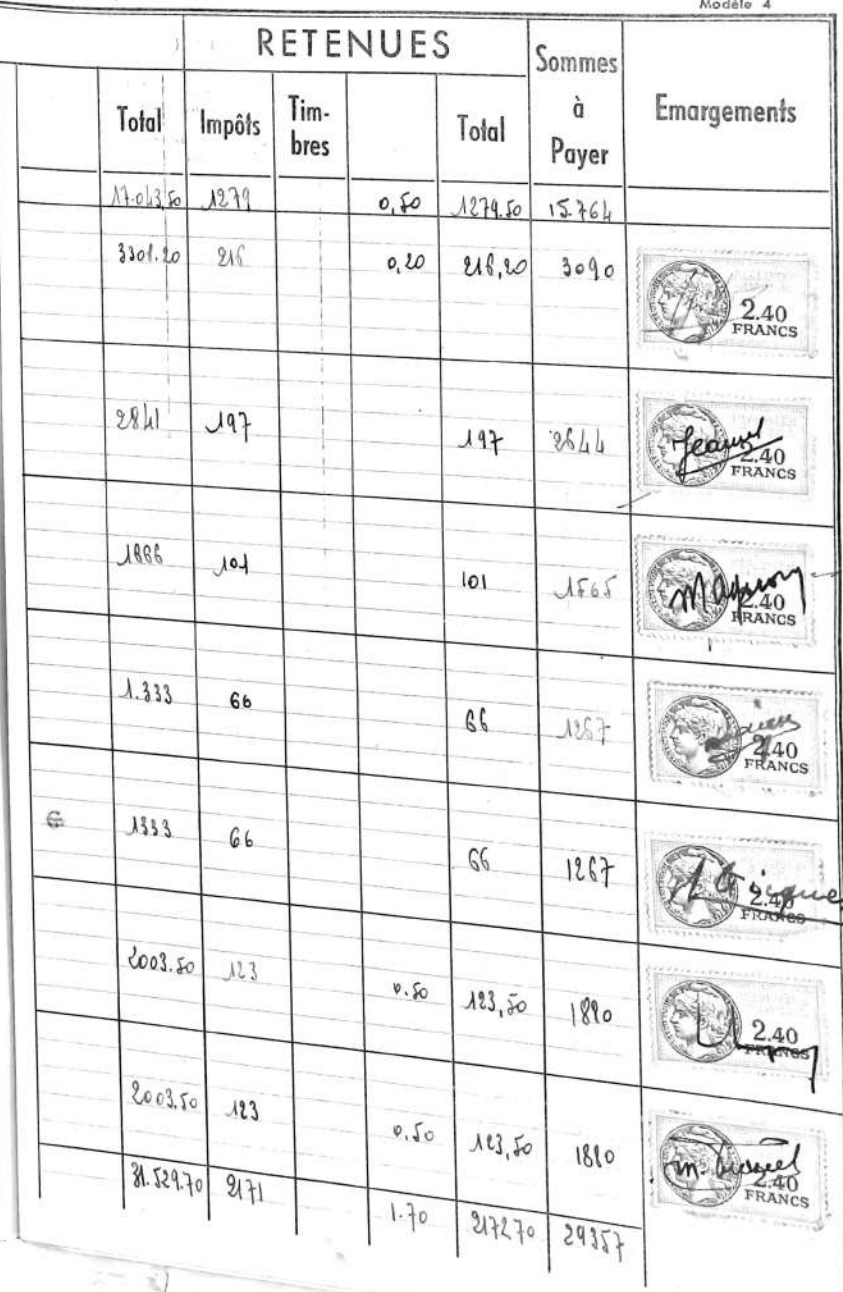 Modèle 4
RETENUES
Sommes à Payer
Emargements
Total
Impôts
Tim-
bres
Total
17.043,50 1279 0,50 1279.50 15.764
3306.20 216 0,20 216,20 3090
2.40
FRANCS
2841 197 197 2644
Jeanzel
2.40
FRANCS
1666 101 101 1565
2.40
FRANCS
1.333 66 66 1267
2.40
FRANCS
1333 66 66 1267
2.40
FRANCS
2003.50 123 0.50 123,50 1880
2.40
FRANCS
2003.50 123 0,50 123,50 1880
2.40
FRANCS
31.529.70 2171 1.70 2172.70 29357